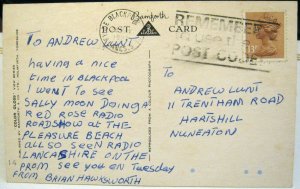 BLACKPOOL
Bamforth
POST CARD
REMEMBER
USE THE
POST CODE
TO ANDREW LUNT
having a nice
time in BLACKPOOL
I WENT to see
SALLY MOON DOING A
RED ROSE RADIO
ROADSHOW at THE
PLEASURE BEACH
ALL so SEEN RADIO
LANCASHIRE ON THE
PROM see you on Tuesday
FROM BRIAN HAWKSWORTH
TO
ANDREW LUNT
11 TRENTHAM ROAD
HARTSHILL
NUNEATON